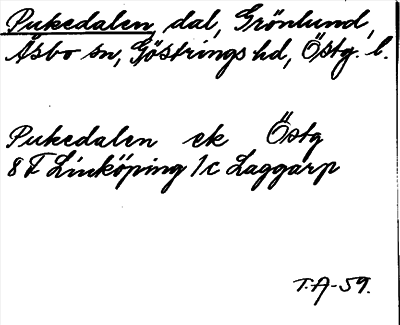 Pukedalen, dal, Grönlund,
Åsbo sn, Göstrings hd, Östg. l.
Pukedalen ek Östg
8 F Linköping 1c Laggarp
T.A-59.